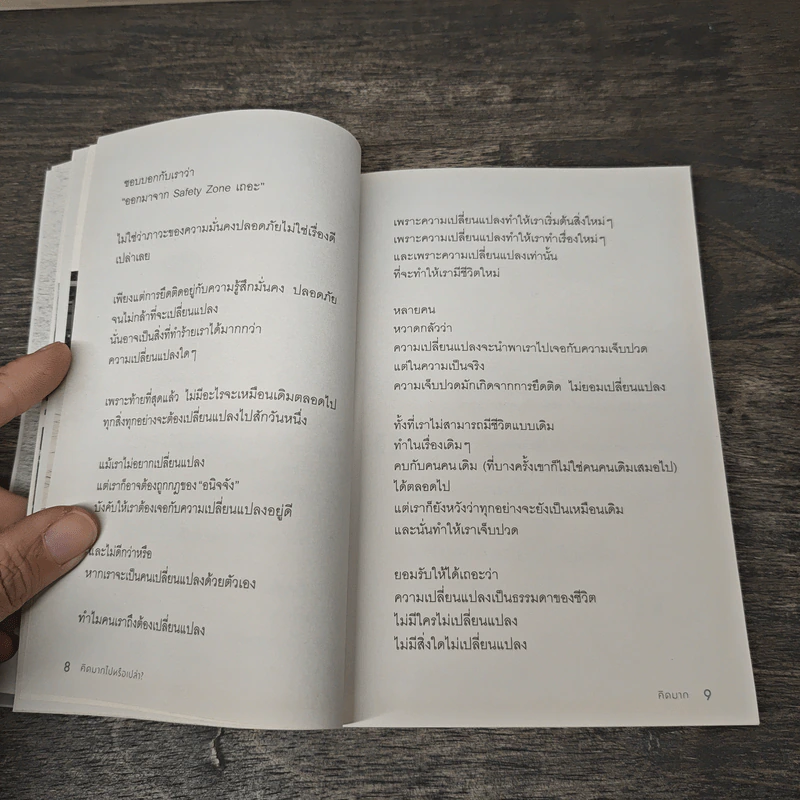 ชอบบอกกับเราว่า
“ออกมาจาก Safety Zone เถอะ”
ไม่ใช่ว่าภาวะของความมั่นคงปลอดภัยไม่ใช่เรื่องดี
เปล่าเลย
เพียงแต่การยึดติดอยู่กับความรู้สึกมั่นคง ปลอดภัย
จนไม่กล้าที่จะเปลี่ยนแปลง
นั่นอาจเป็นสิ่งที่ทำร้ายเราได้มากกว่า
ความเปลี่ยนแปลงใดๆ
เพราะท้ายที่สุดแล้ว ไม่มีอะไรจะเหมือนเดิมตลอดไป
ทุกสิ่งทุกอย่างจะต้องเปลี่ยนแปลงไปสักวันหนึ่ง
แม้เราไม่อยากเปลี่ยนแปลง
แต่เราก็อาจต้องถูกกฎของ “อนิจจัง”
บังคับให้เราต้องเจอกับความเปลี่ยนแปลงอยู่ดี
และไม่ดีกว่าหรือ
หากเราจะเป็นคนเปลี่ยนแปลงด้วยตัวเอง
ทำไมคนเราถึงต้องเปลี่ยนแปลง
8 คิดมากไปหรือเปล่า?
เพราะความเปลี่ยนแปลงทำให้เราเริ่มต้นสิ่งใหม่ๆ
เพราะความเปลี่ยนแปลงทำให้เราทำเรื่องใหม่ๆ
และเพราะความเปลี่ยนแปลงเท่านั้น
ที่จะทำให้เรามีชีวิตใหม่
หลายคน
หวาดกลัวว่า
ความเปลี่ยนแปลงจะนำพาเราไปเจอกับความเจ็บปวด
แต่ในความเป็นจริง
ความเจ็บปวดมักเกิดจากการยึดติด ไม่ยอมเปลี่ยนแปลง
ทั้งที่เราไม่สามารถมีชีวิตแบบเดิม
ทำในเรื่องเดิมๆ
คบกับคนคนเดิม (ที่บางครั้งเขาก็ไม่ใช่คนคนเดิมเสมอไป)
ได้ตลอดไป
แต่เราก็ยังหวังว่าทุกอย่างจะยังเป็นเหมือนเดิม
และนั่นทำให้เราเจ็บปวด
ยอมรับให้ได้เถอะว่า
ความเปลี่ยนแปลงเป็นธรรมดาของชีวิต
ไม่มีใครไม่เปลี่ยนแปลง
ไม่มีสิ่งใดไม่เปลี่ยนแปลง
คิดมาก 9